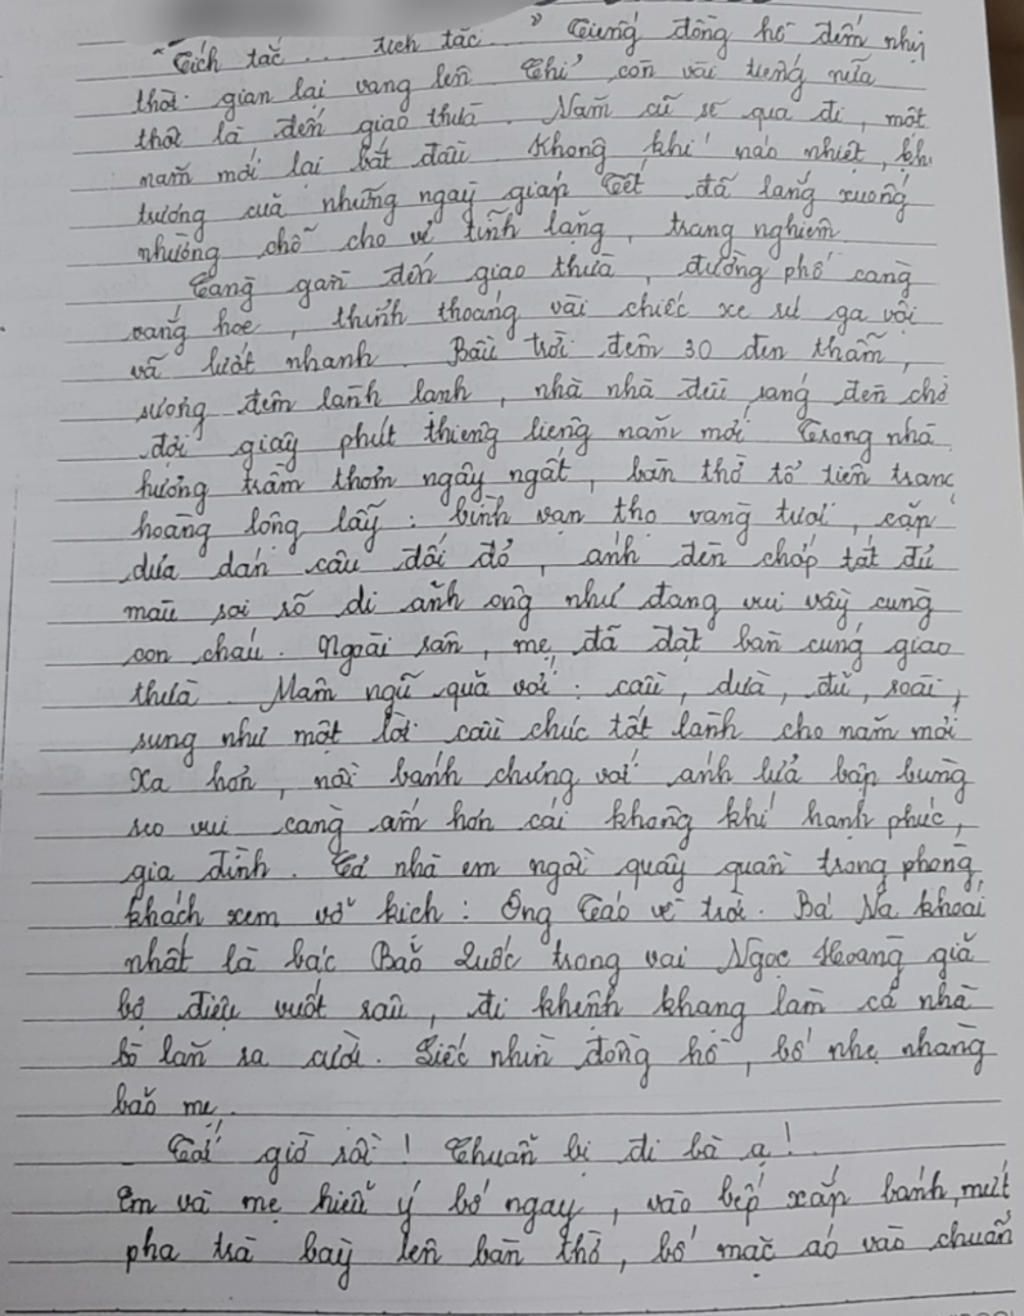 "Tích tắc... tích tắc..." Tiếng đồng hồ đếm nhịp
thời gian lại vang lên. Chỉ còn vài tiếng nữa
thôi là đến giao thừa. Năm cũ sẽ qua đi, một
năm mới lại bắt đầu. Không khí náo nhiệt, khẩn
trương của những ngày giáp Tết đã lắng xuống
nhường chỗ cho vẻ tĩnh lặng, trang nghiêm
Càng gần đến giao thừa, đường phố càng
vắng hoe, thỉnh thoảng vài chiếc xe rú ga vội
vã lướt nhanh. Bầu trời đêm 30 đen thẫm,
sương đêm lành lạnh, nhà nhà đều sáng đèn chờ
đợi giây phút thiêng liêng năm mới. Trong nhà
hương trầm thơm ngây ngất, bàn thờ tổ tiên trang
hoàng lộng lẫy: bình vạn thọ vàng tươi, cặp
dưa dán câu đối đỏ, ánh đèn chớp tắt đủ
màu soi rõ di ảnh ông như đang vui vầy cùng
con cháu. Ngoài sân, mẹ đã đặt bàn cúng giao
thừa. Mâm ngũ quả với: cầu, dừa, đủ, xoài,
sung như một lời cầu chúc tốt lành cho năm mới
Xa hơn, nồi bánh chưng với ánh lửa bập bùng
reo vui càng ấm hơn cái không khí hạnh phúc,
gia đình. Cả nhà em ngồi quây quần trong phòng
khách xem vở kịch: Ông Táo về trời. Bé Na khoái
nhất là bác Bảo Quốc trong vai Ngọc Hoàng giả
bộ điệu vuốt râu, đi khệnh khạng làm cả nhà
bò lăn ra cười. Liếc nhìn đồng hồ, bố nhẹ nhàng
bảo mẹ.
- Tới giờ rồi! Chuẩn bị đi bà ạ!
Em và mẹ hiểu ý bố ngay, vào bếp xắp bánh, mứt
pha trà bày lên bàn thờ, bố mặc áo vào chuẩn